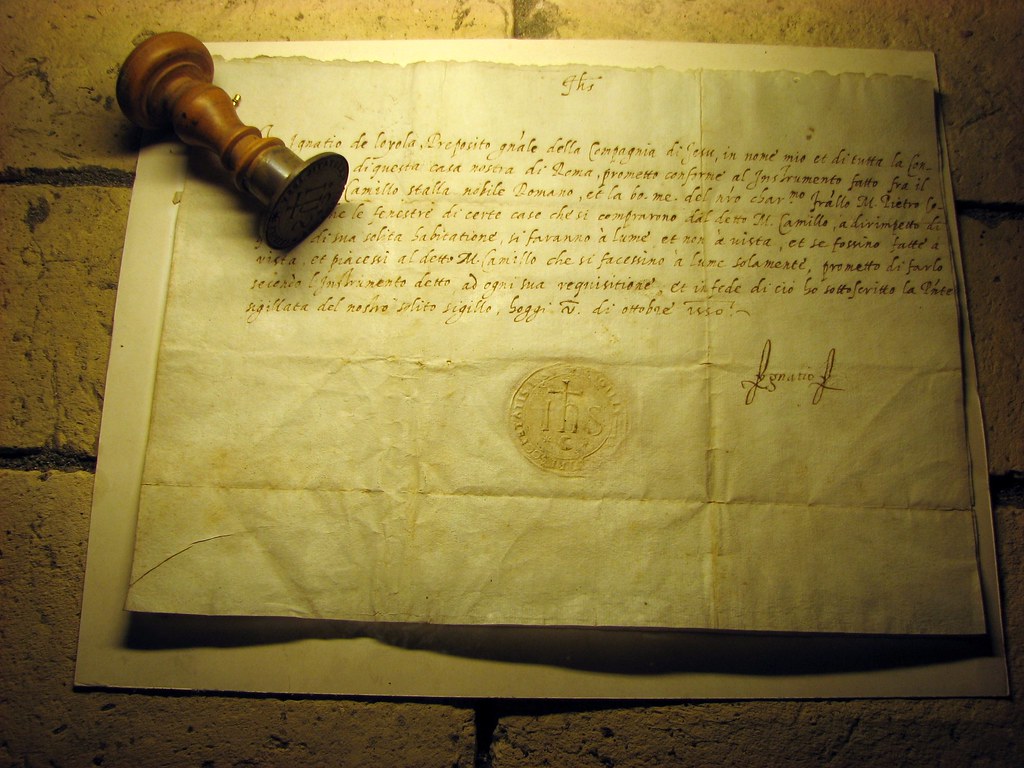 Jhs
Ignatio de loyola, Preposito gnãle della Compagnia di Jesu, in nome mio et di tutta la Con-
di questa casa nostra di Roma, prometto conforme al Jnstrumento fatto fra il
Camillo stalla nobile Romano, et la bo. me. del nrõ char.mo frãllo M. Pietro Co-
le fenestre di certe case che si comprarono dal detto M. Camillo, a dirimpetto di
di sua solita habitatione, si faranno à lume, et non à vista, et se fossino fatte à
vista, et piacessi al detto M. Camillo che si facessino à lume solamente, prometto di farlo
secõdo l'Jnstrumento detto ad ogni sua requisitione, et in fede di ciò ho sottoscritto la Pñte
sigillata del nostro solito sigillo, hoggi V. di ottobre 1550.
Ignatio
Jhs